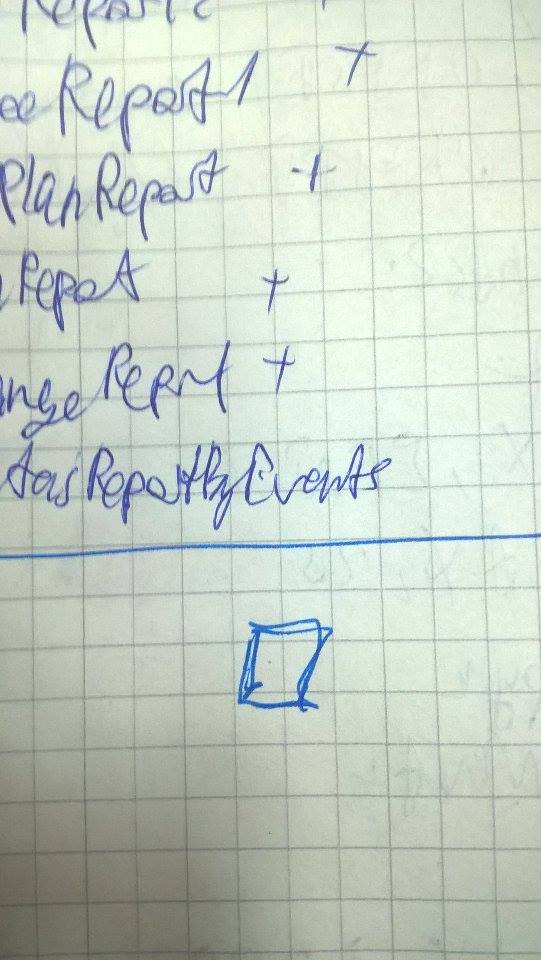 eeReport1 +
PlanReport +
Repot +
angeReprt +
ReportByEvents